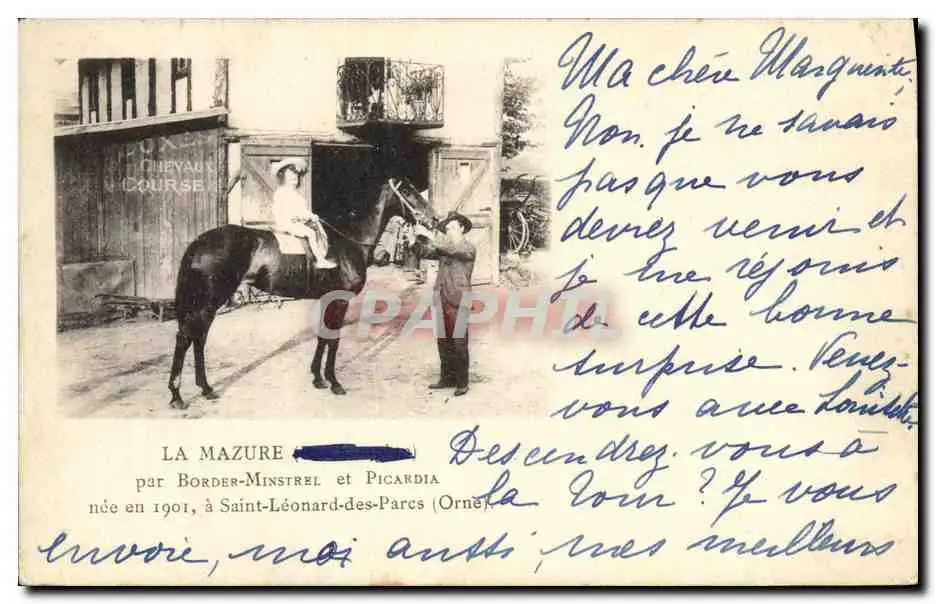 CHEVAUX
COURSE
CPAPHIL
LA MAZURE
par BORDER-MINSTREL et PICARDIA
née en 1901, à Saint-Léonard-des-Parcs (Orne).
Ma chère Marguerite,
Non, je ne savais
pas que vous
devrez venir et
je me réjouis
de cette bonne
surprise. Venez-
vous avec Louisette.
Descendrez-vous à
la Tour ? Je vous
envoie, moi aussi, mes meilleurs